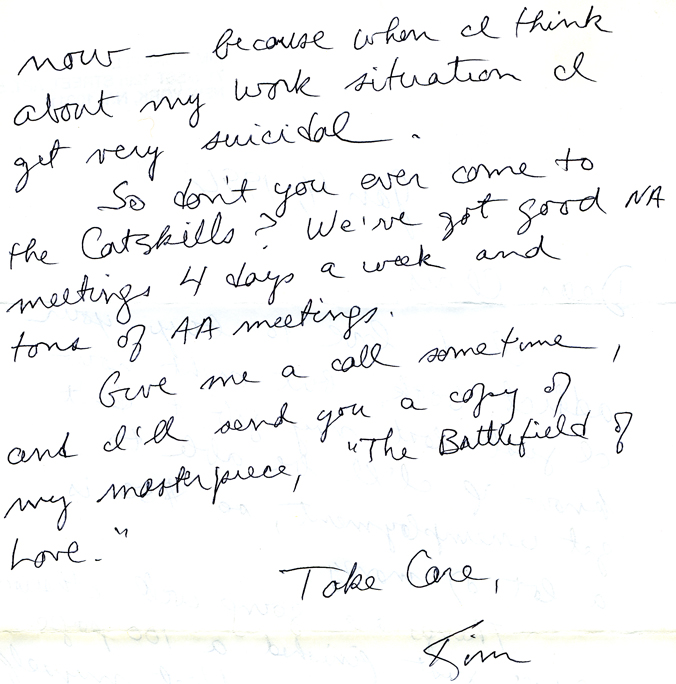 now — because when I think
about my work situation I
get very suicidal.
So don't you ever come to
the Catskills? We've got good NA
meetings 4 days a week and
tons of AA meetings.
Give me a call sometime,
and I'll send you a copy of
my masterpiece, "The Battlefield of
Love."
Take Care,